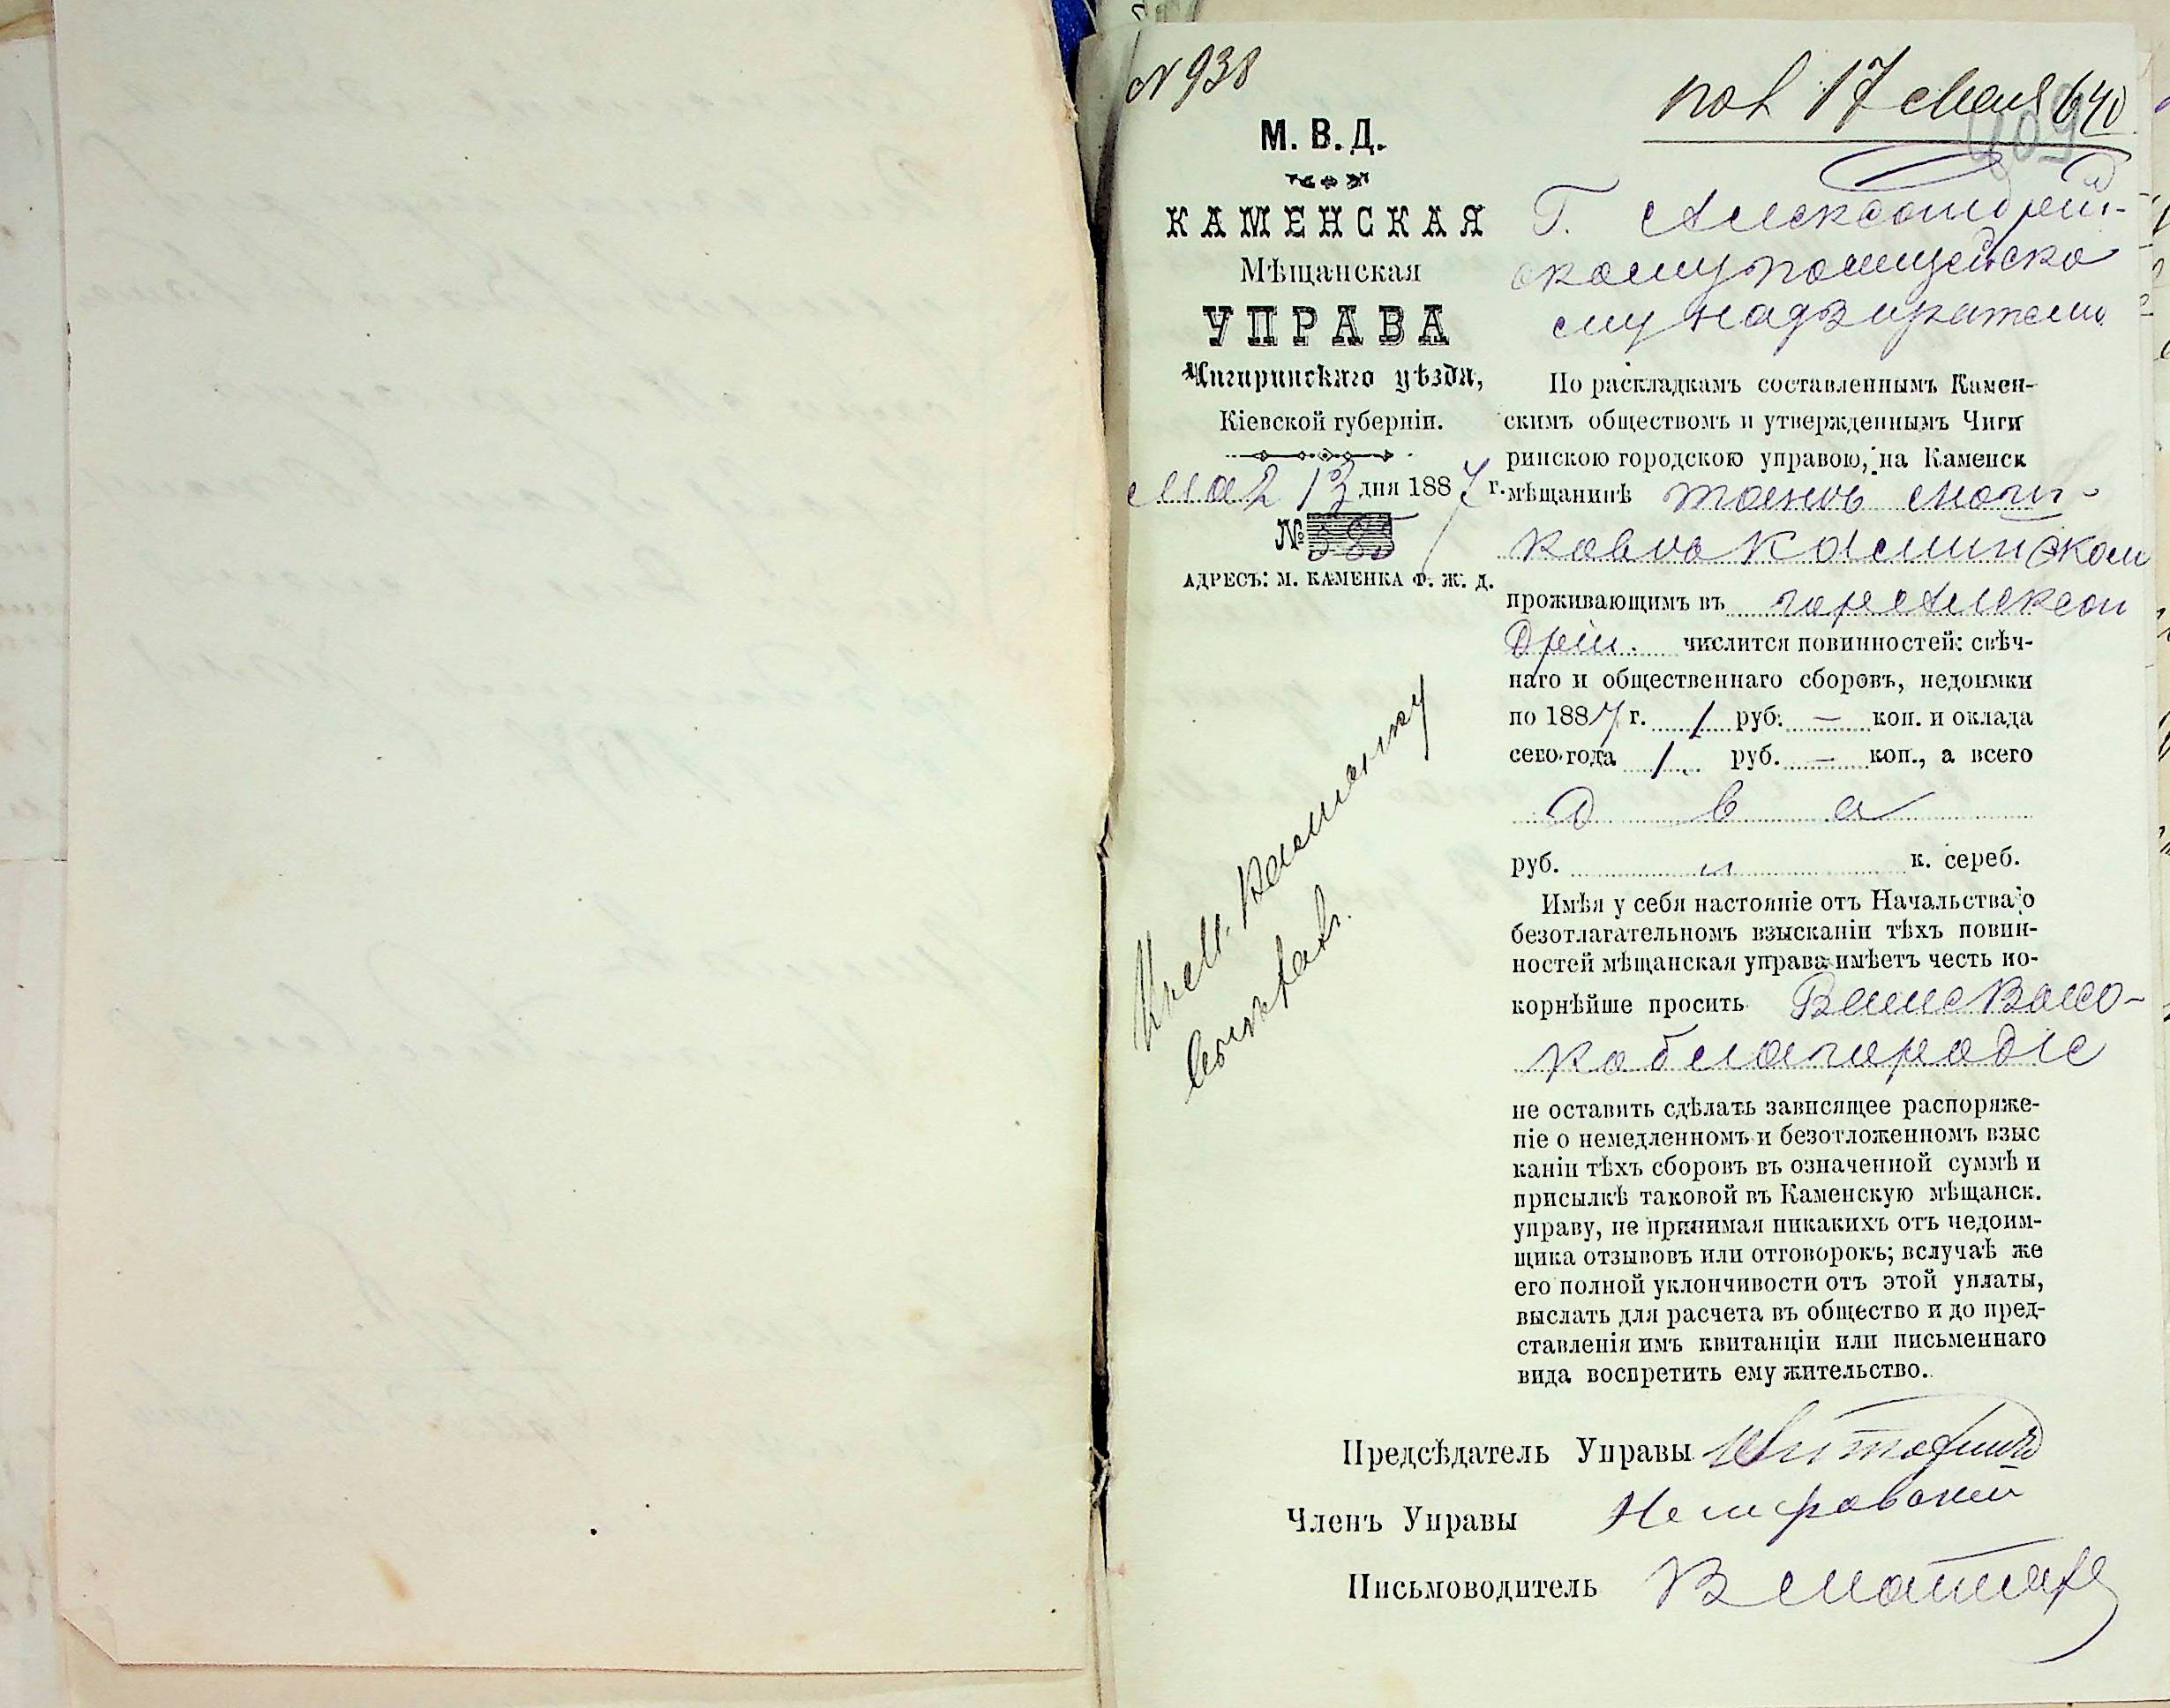 N 938
пол 17 мая 640
409
М. В. Д.
КАМЕНСКАЯ
Мѣщанская
УПРАВА
Чигиринскаго уѣзда,
Кіевской губерніи.
мая 13 дня 1887 г.
№ 385
АДРЕСЪ: М. КАМЕНКА Ф. Ж. Д.
Г. Александрій-
скому полицейско
му надзирателю
По раскладкамъ составленнымъ Камен-
скимъ обществомъ и утвержденнымъ Чиги
ринскою городскою управою, на Каменск
мѣщанинѣ
проживающимъ въ гор Алексан
дріи. числится повинностей: свѣч-
наго и общественнаго сборовъ, недоимки
по 1887 г. 1 руб. — коп. и оклада
сего года 1 руб. — коп., а всего
два
руб. к. сереб.
Имѣя у себя настояніе отъ Начальства о
безотлагательномъ взысканіи тѣхъ повин-
ностей мѣщанская управа имѣетъ честь по-
корнѣйше просить Ваше Высо-
коблагородіе
не оставить сдѣлать зависящее распоряже-
ніе о немедленномъ и безотложенномъ взыс
каніи тѣхъ сборовъ въ означенной суммѣ и
присылкѣ таковой въ Каменскую мѣщанск.
управу, не принимая никакихъ отъ недоим-
щика отзывовъ или отговорокъ; вслучаѣ же
его полной уклончивости отъ этой уплаты,
выслать для расчета въ общество и до пред-
ставленія имъ квитанціи или письменнаго
вида воспретить ему жительство.
Предсѣдатель Управы
Членъ Управы Немировскій
Письмоводитель В